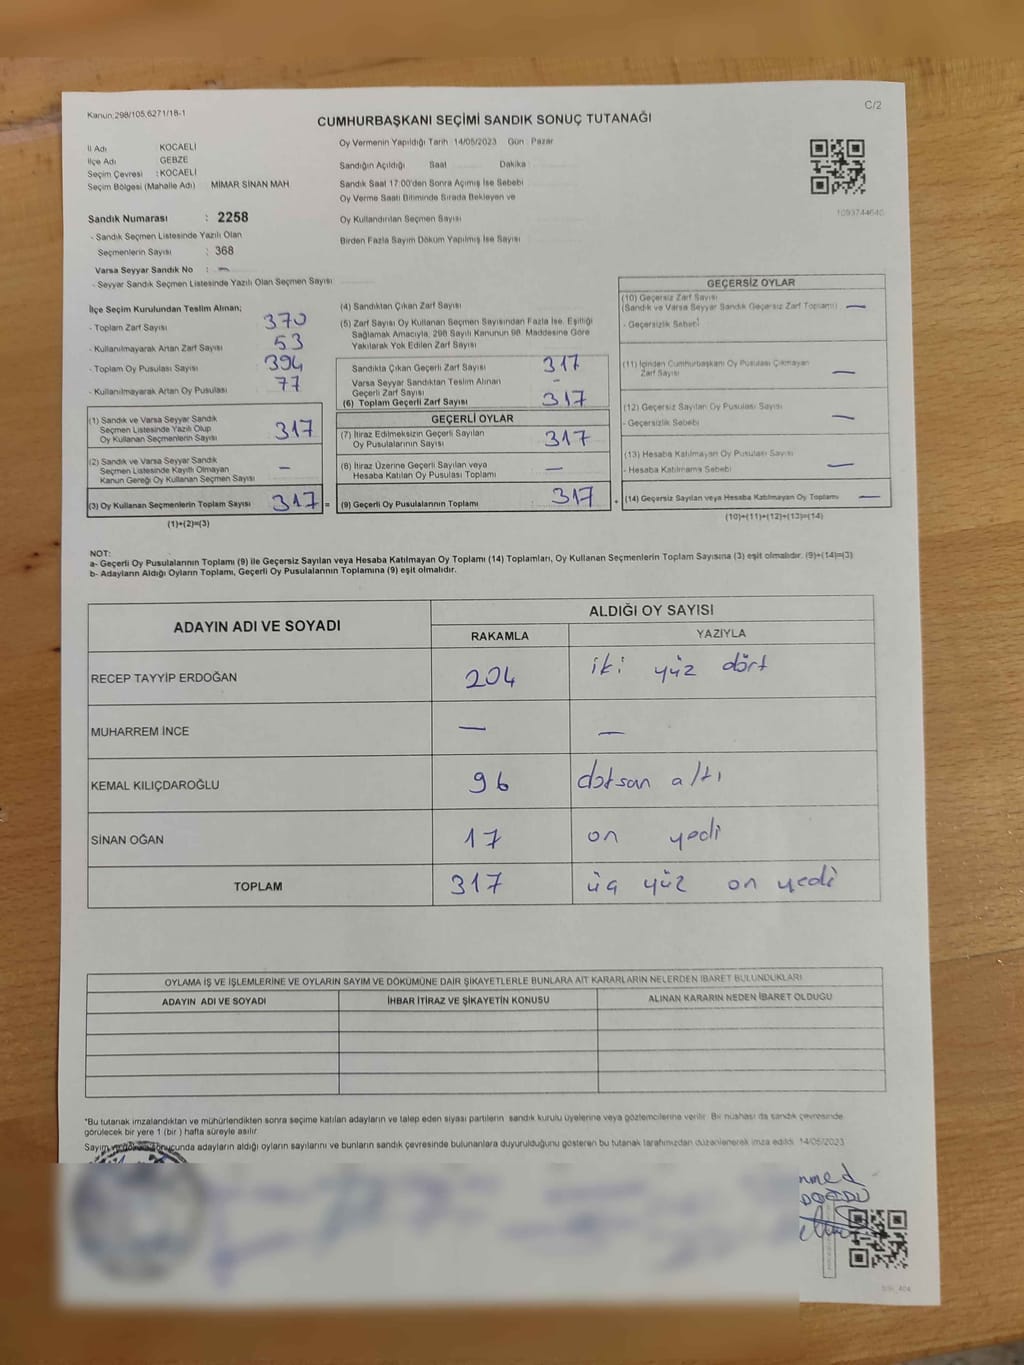 Kanun:298/105,6271/18-1
C/2
CUMHURBAŞKANI SEÇİMİ SANDIK SONUÇ TUTANAĞI
İl Adı : KOCAELİ
İlçe Adı : GEBZE
Seçim Çevresi : KOCAELİ
Seçim Bölgesi (Mahalle Adı) MİMAR SİNAN MAH
Sandık Numarası : 2258
- Sandık Seçmen Listesinde Yazılı Olan
Seçmenlerin Sayısı : 368
Varsa Seyyar Sandık No : —
- Seyyar Sandık Seçmen Listesinde Yazılı Olan Seçmen Sayısı
Oy Vermenin Yapıldığı Tarih 14/05/2023 Gün : Pazar
Sandığın Açıldığı Saat Dakika
Sandık Saat 17:00'den Sonra Açımış İse Sebebi
Oy Verme Saati Bitiminde Sırada Bekleyen ve
Oy Kullandırılan Seçmen Sayısı
Birden Fazla Sayım Döküm Yapılmış İse Sayısı
1093744640
İlçe Seçim Kurulundan Teslim Alınan;
- Toplam Zarf Sayısı 370
- Kullanılmayarak Artan Zarf Sayısı 53
- Toplam Oy Pusulası Sayısı 394
- Kullanılmayarak Artan Oy Pusulası 77
(1) Sandık ve Varsa Seyyar Sandık
Seçmen Listesinde Yazılı Olup
Oy Kullanan Seçmenlerin Sayısı 317
(2) Sandık ve Varsa Seyyar Sandık
Seçmen Listesinde Kayıtlı Olmayan
Kanun Gereği Oy Kullanan Seçmen Sayısı —
(3) Oy Kullanan Seçmenlerin Toplam Sayısı 317 =
(1)+(2)=(3)
(4) Sandıktan Çıkan Zarf Sayısı
(5) Zarf Sayısı Oy Kullanan Seçmen Sayısından Fazla İse, Eşitliği
Sağlamak Amacıyla, 298 Sayılı Kanunun 98. Maddesine Göre
Yakılarak Yok Edilen Zarf Sayısı
Sandıkta Çıkan Geçerli Zarf Sayısı 317
Varsa Seyyar Sandıktan Teslim Alınan
Geçerli Zarf Sayısı -
(6) Toplam Geçerli Zarf Sayısı 317
GEÇERLİ OYLAR
(7) İtiraz Edilmeksizin Geçerli Sayılan
Oy Pusulalarının Sayısı 317
(8) İtiraz Üzerine Geçerli Sayılan veya
Hesaba Katılan Oy Pusulası Toplamı —
(9) Geçerli Oy Pusulalarının Toplamı 317 +
GEÇERSİZ OYLAR
(10) Geçersiz Zarf Sayısı
(Sandık ve Varsa Seyyar Sandık Geçersiz Zarf Toplamı) —
- Geçersizlik Sebebi
(11) İçinden Cumhurbaşkanı Oy Pusulası Çıkmayan
Zarf Sayısı —
(12) Geçersiz Sayılan Oy Pusulası Sayısı
- Geçersizlik Sebebi —
(13) Hesaba Katılmayan Oy Pusulası Sayısı
- Hesaba Katılmama Sebebi —
(14) Geçersiz Sayılan veya Hesaba Katılmayan Oy Toplamı —
(10)+(11)+(12)+(13)=(14)
NOT:
a- Geçerli Oy Pusulalarının Toplamı (9) ile Geçersiz Sayılan veya Hesaba Katılmayan Oy Toplamı (14) Toplamları, Oy Kullanan Seçmenlerin Toplam Sayısına (3) eşit olmalıdır. (9)+(14)=(3)
b- Adayların Aldığı Oyların Toplamı, Geçerli Oy Pusulalarının Toplamına (9) eşit olmalıdır.
ADAYIN ADI VE SOYADI
ALDIĞI OY SAYISI
RAKAMLA YAZIYLA
RECEP TAYYİP ERDOĞAN 204 iki yüz dört
MUHARREM İNCE — —
KEMAL KILIÇDAROĞLU 96 dotsan altı
SİNAN OĞAN 17 on yedi
TOPLAM 317 üç yüz on yedi
OYLAMA İŞ VE İŞLEMLERİNE VE OYLARIN SAYIM VE DÖKÜMÜNE DAİR ŞİKAYETLERLE BUNLARA AİT KARARLARIN NELERDEN İBARET BULUNDUKLARI
ADAYIN ADI VE SOYADI İHBAR İTİRAZ VE ŞİKAYETİN KONUSU ALINAN KARARIN NEDEN İBARET OLDUĞU
*Bu tutanak imzalandıktan ve mühürlendikten sonra seçime katılan adayların ve talep eden siyasi partilerin sandık kurulu üyelerine veya gözlemcilerine verilir. Bir nüshası da sandık çevresinde
görülecek bir yere 1 (bir ) hafta süreyle asılır.
Sayım ve sonucunda adayların aldığı oyların sayılarını ve bunların sandık çevresinde bulunanlara duyurulduğunu gösteren bu tutanak tarafımızdan düzenlenerek imza edildi. 14/05/2023